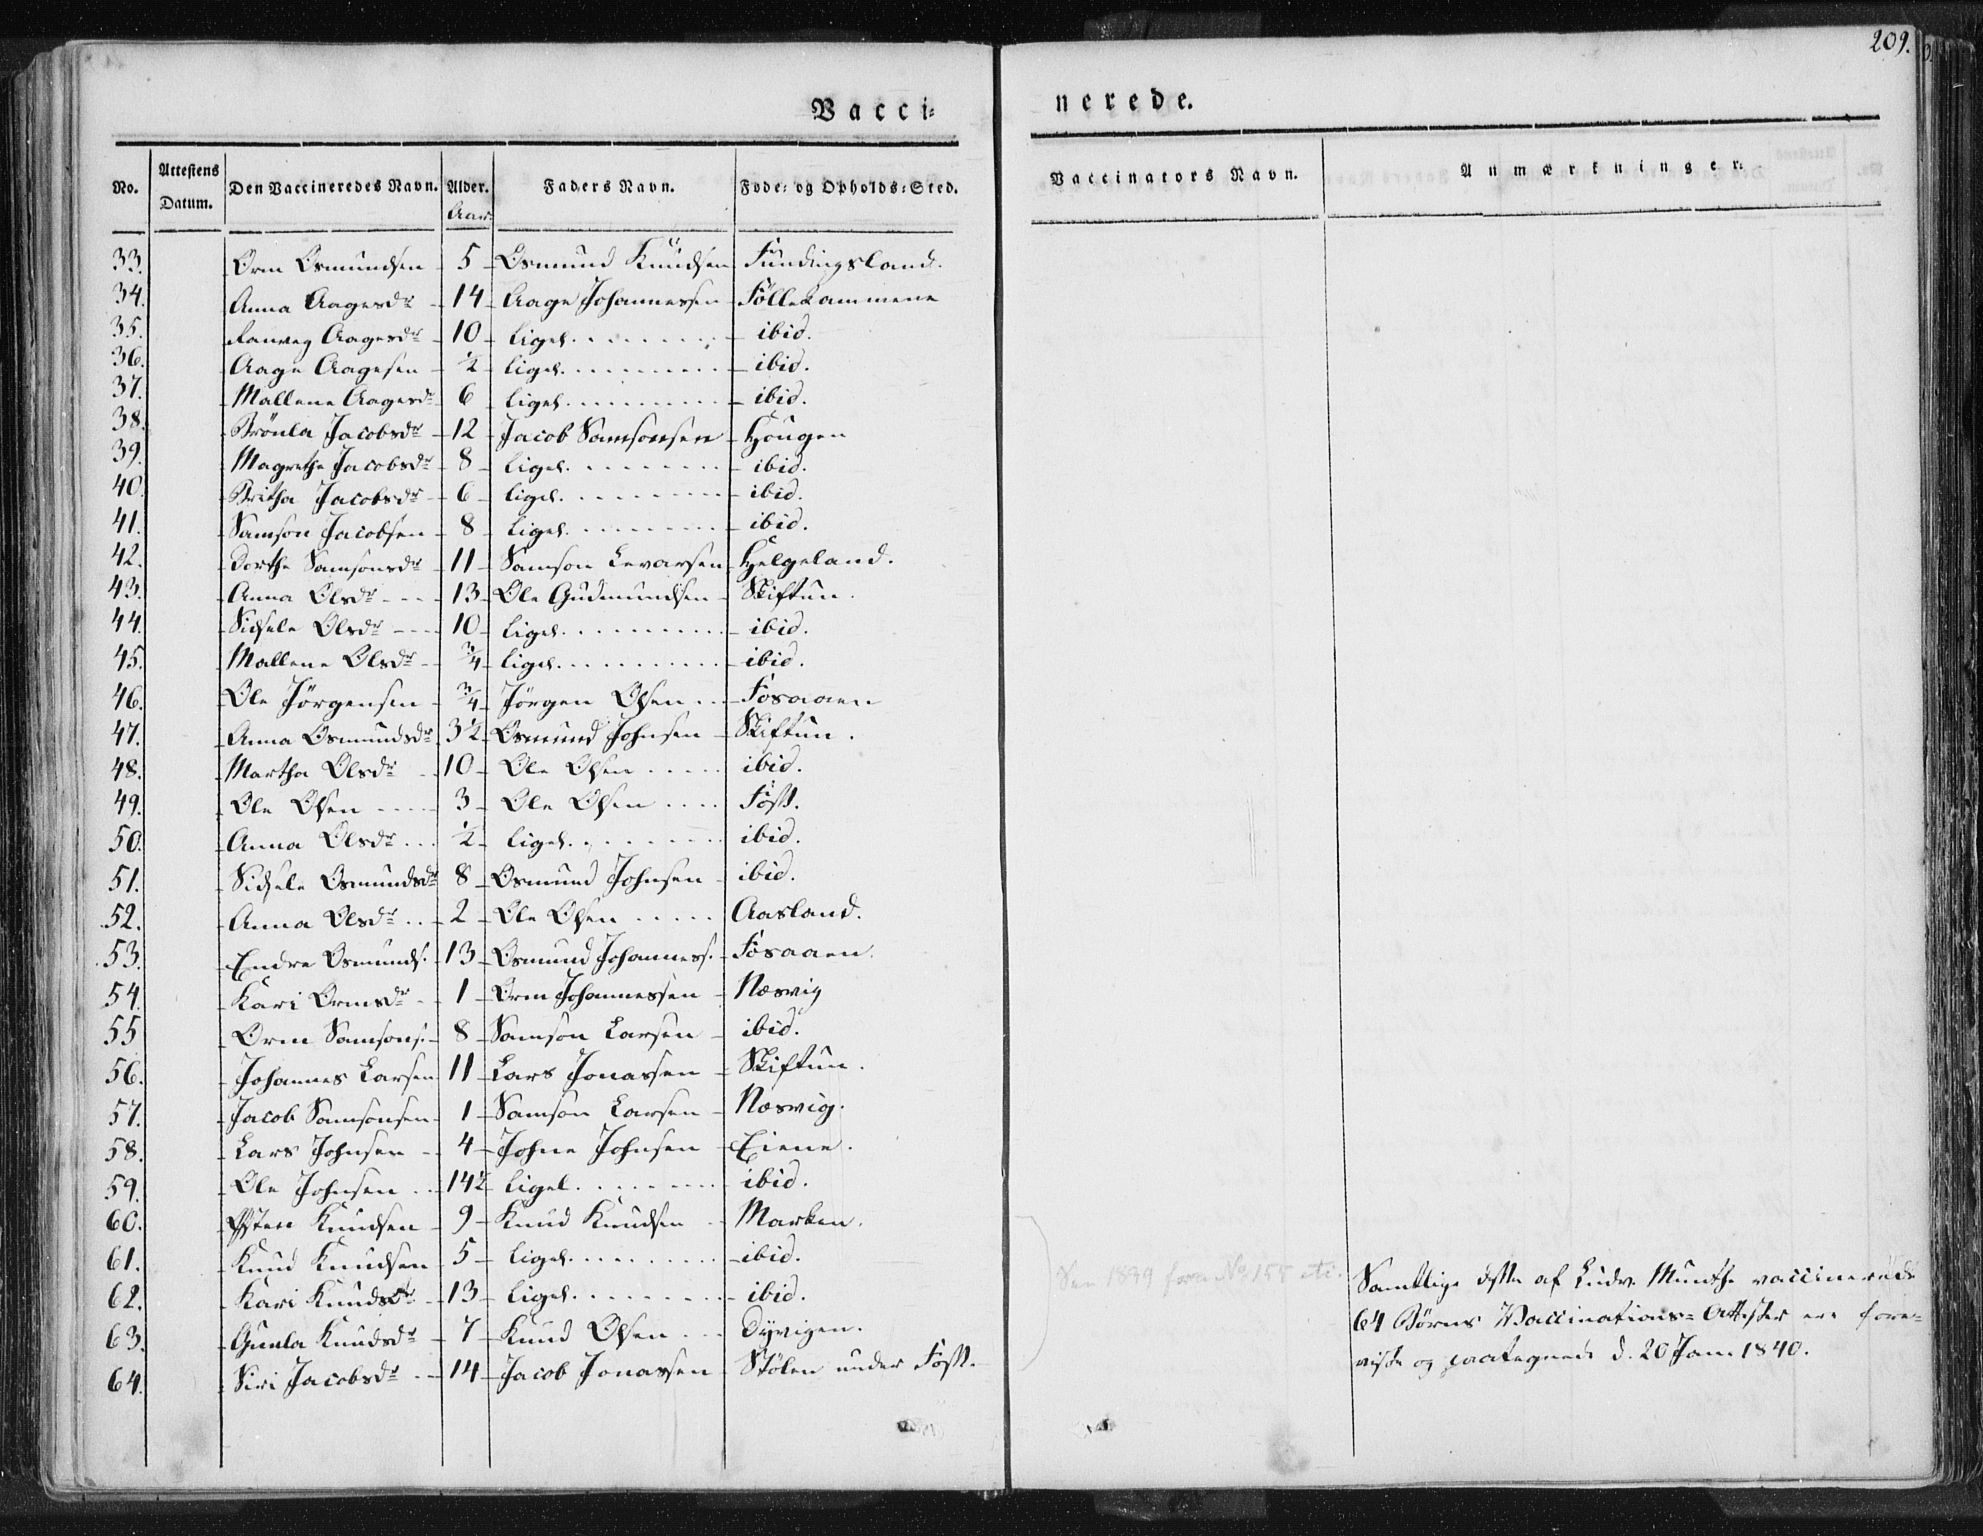 209.
Vacci-
nerede.
No.
Attestens Datum.
Den Vaccineredes Navn.
Alder.
Aar.
Faders Navn.
Føde- og Opholds-Sted.
Vaccinators Navn.
Anmærkninger.
33. Orm Osmundsen 5 Osmund Knudsen Fundingsland.
34. Anna Aagesdr 14 Aage Johannessen Föllekammene
35. Ranveg Aagesdr 10 ligel. ibid.
36. Aage Aagesen ½ ligel. ibid.
37. Mallene Aagesdr 6 ligel. ibid.
38. Brönla Jacobsdr 12 Jacob Samsonsen Hougen
39. Magrethe Jacobsdr 8 ligel. ibid.
40. Britha Jacobsdr 6 ligel. ibid.
41. Samson Jacobsen 8 ligel. ibid.
42. Dorthe Samsonsdr 11 Samson Levarsen Helgeland.
43. Anna Olsdr 13 Ole Gudmundsen Skiftun.
44. Sidsele Olsdr 10 ligel. ibid.
45. Mallene Olsdr ¾ ligel. ibid.
46. Ole Jörgensen ¾ Jörgen Olsen Fosaaen
47. Anna Osmundsdr 3½ Osmund Johnsen Skiftun.
48. Martha Olsdr 10 Ole Olsen ibid.
49. Ole Olsen 3 Ole Olsen Foss.
50. Anna Olsdr ½ ligel. ibid.
51. Sidsele Osmundsdr 8 Osmund Johnsen ibid.
52. Anna Olsdr 2 Ole Olsen Aasland.
53. Endre Osmunds. 13 Osmund Johanness. Fosaaen.
54. Kari Ormsdr 1 Orm Johannessen Næsvig
55 Orm Samsons. 8 Samson Larsen ibid.
56. Johannes Larsen 11 Lars Jonassen Skiftun.
57. Jacob Samsonsen 1 Samson Larsen Næsvig.
58. Lars Johnsen 4 Johne Johnsen Eiene.
59. Ole Johnsen 14½ ligel. ibid.
60. Östen Knudsen 9 Knud Knudsen Marken.
61. Knud Knudsen 5 ligel. ibid.
62. Kari Knudsdr 13 ligel. ibid.
63. Gunla Knudsdr 7 Knud Olsen Dyvigen.
64. Siri Jacobsdr 14 Jacob Jonassen Stölen under Foss.
1839 No 155
Samtlige disse af Ludv. Munthe vaccinerede
64 Börns Vaccinations-Attester ere fore-
viste og paategnede d. 20 Jan. 1840.